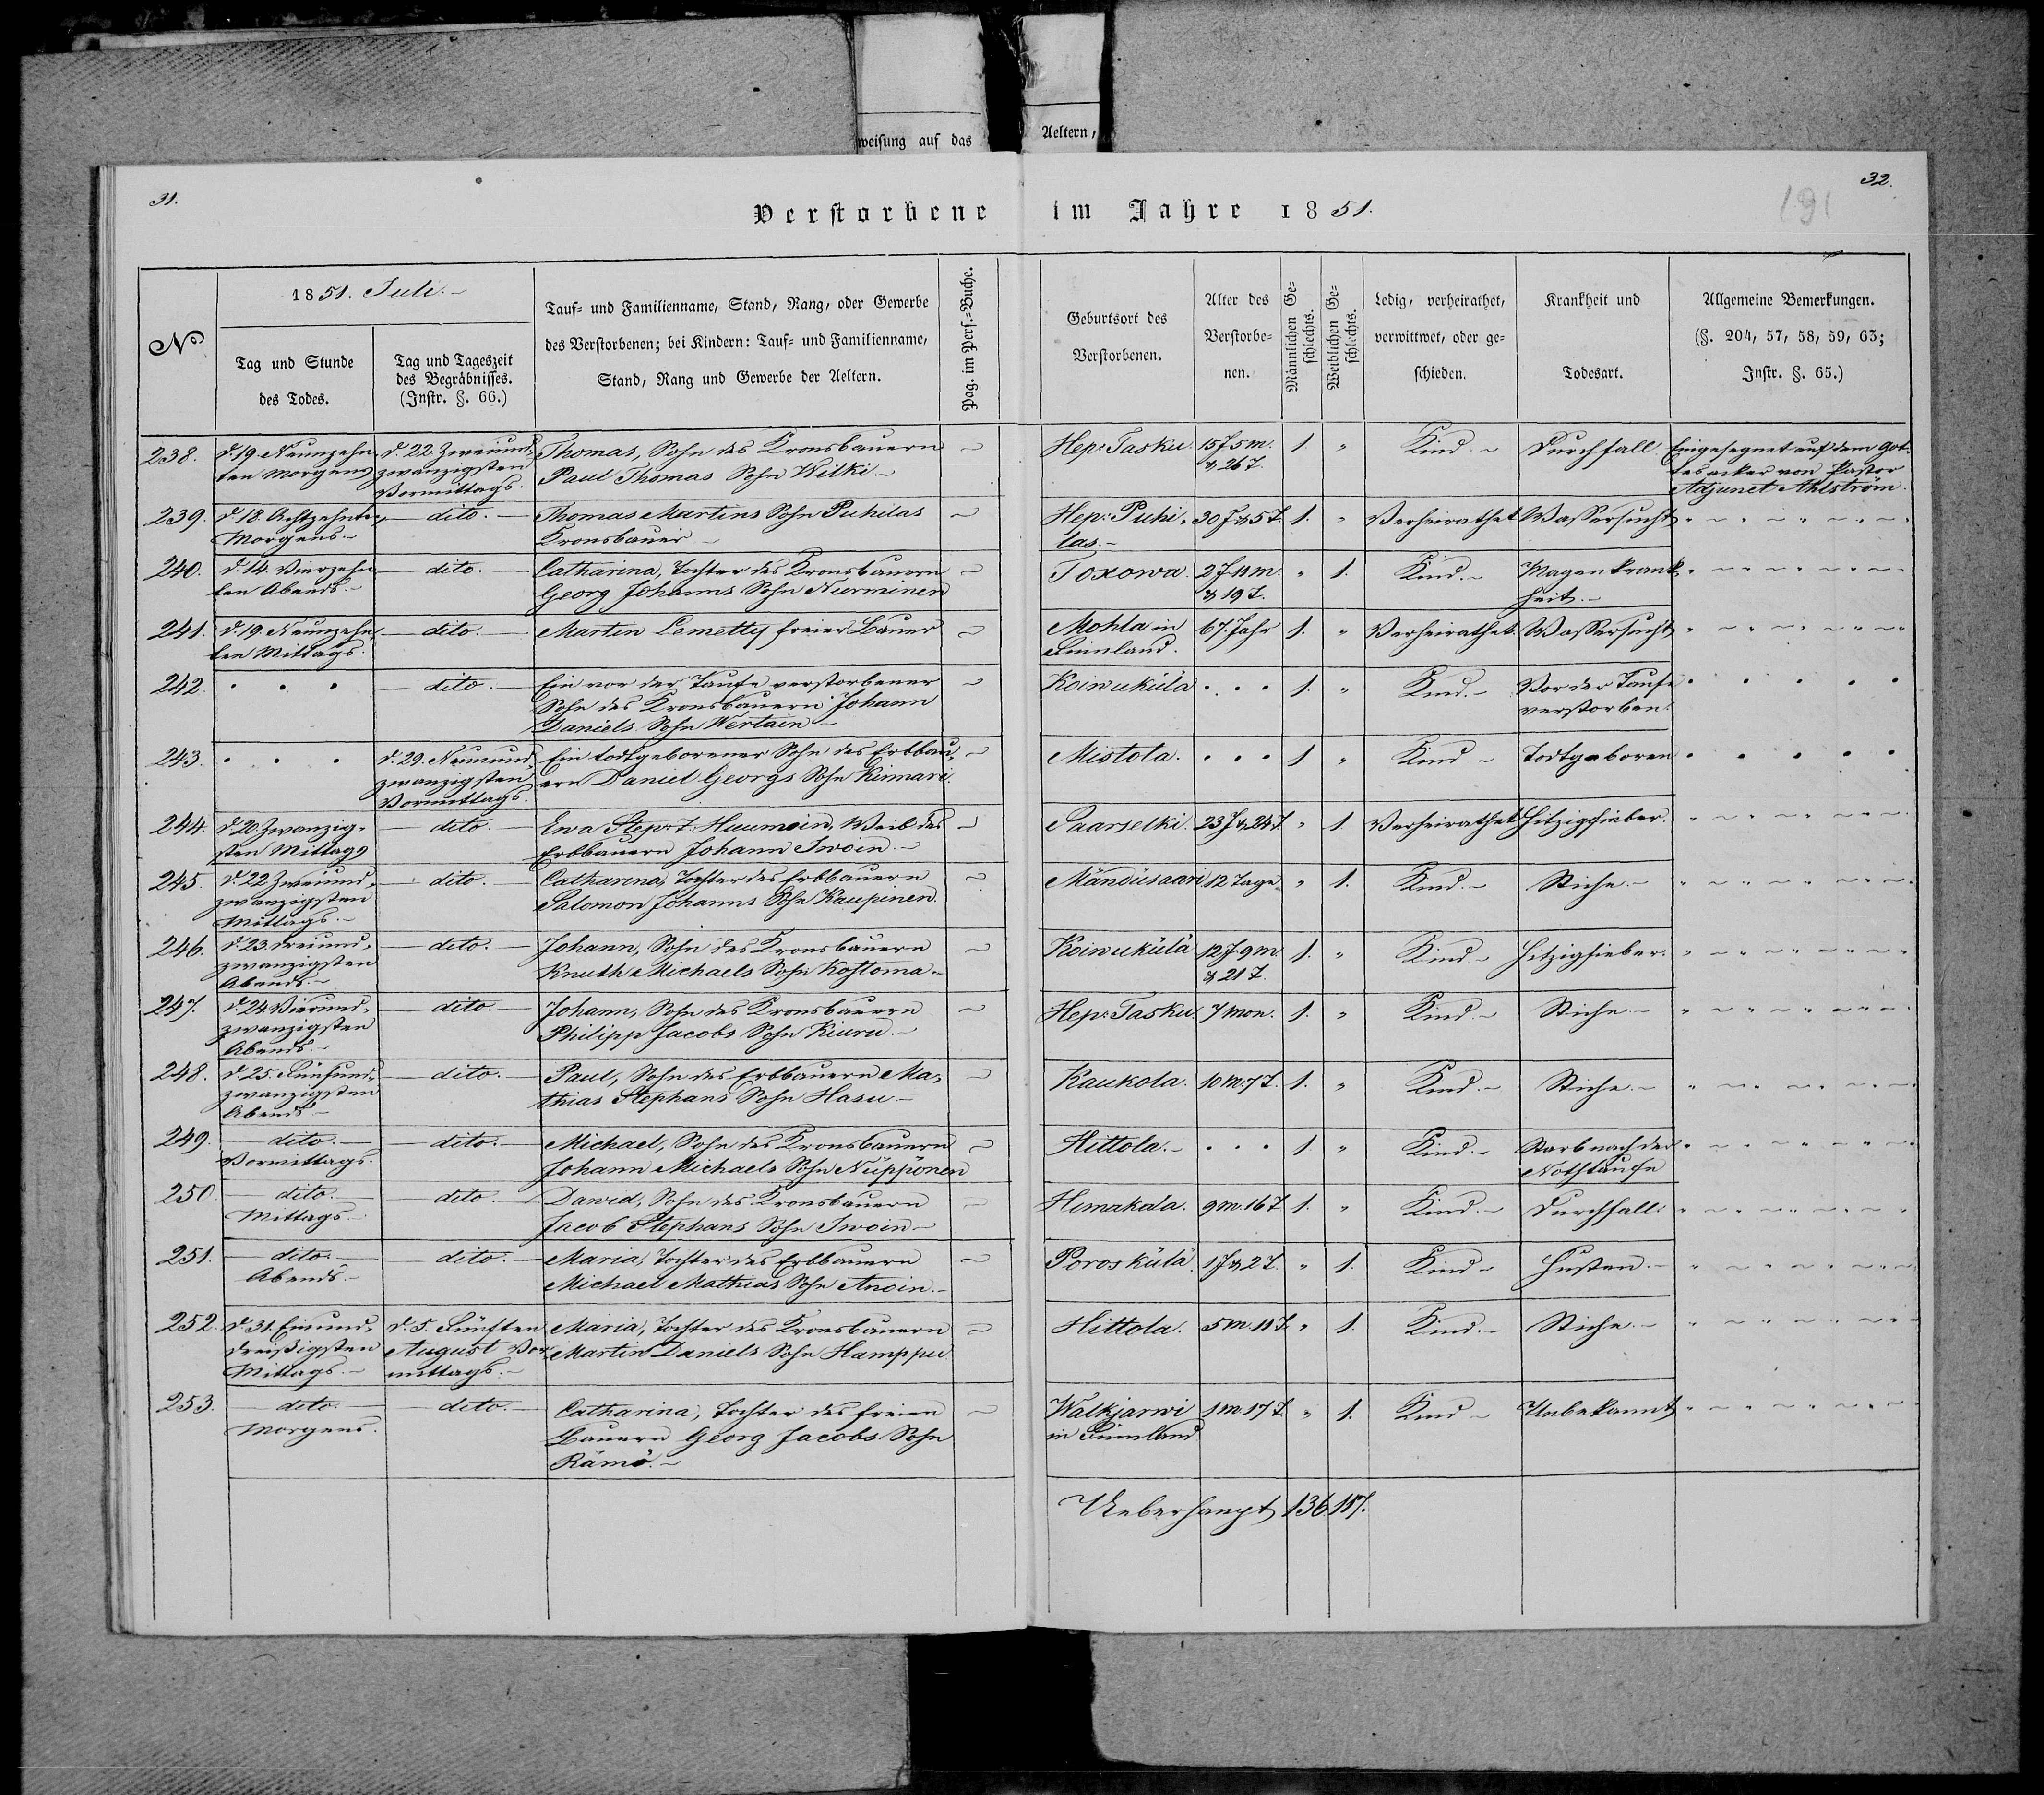 weisung auf das
Aeltern,
31.
32.
191
Verstorbene im Jahre 1851.
1851. Juli.
No
Tag und Stunde
des Todes.
Tag und Tageszeit
des Begräbnisses.
(Instr. §. 66.)
Tauf- und Familienname, Stand, Rang, oder Gewerbe
des Verstorbenen; bei Kindern: Tauf- und Familienname,
Stand, Rang und Gewerbe der Aeltern.
Pag. im Pers.-Buche.
Geburtsort des
Verstorbenen.
Alter des
Verstorbe-
nen.
Männlichen Ge-
schlechts.
Weiblichen Ge-
schlechts.
Ledig, verheirathet,
verwittwet, oder ge-
schieden.
Krankheit und
Todesart.
Allgemeine Bemerkungen.
(§. 204, 57, 58, 59, 63;
Instr. §. 65.)
238. d. 19. Neunzehn- d. 22. Zweiund- Thomas, Sohn des Kronsbauern ~ Hep: Tasku. 15 J 5 m. 1. " Kind ~ Durchfall. Eingesegnet auf dem Got-
ten Morgens zwanzigsten Paul Thomas Sohn Wilki ~ & 26 T. tesacker von Pastor
Vormittags. Adjunct Ahlström.
239. d. 18. Achtzehnten — dito. — Thomas Martins Sohn Puhilas ~ Hep: Puhi- 30 J & 5 T. 1. " Verheirathet Wassersucht " ~ " ~ " ~ " ~ "
Morgens. ~ Kronsbauer ~ las. ~
240. d. 14. Vierzehn- — dito. — Catharina, Tochter des Kronsbauern ~ Toxowa. 2 J 11 m. " 1. Kind. ~ Magenkrank- " ~ " ~ " ~ " ~ "
ten Abends. ~ Georg Johanns Sohn Nurminen & 19 T. heit. ~
241. d. 19. Neunzehn- — dito. — Martin Lemetty freier Bauer ~ Mohla in 67. Jahr 1. " Verheirathet. Wassersucht " ~ " ~ " ~ " ~ "
ten Mittags. Finnland.
242. . . . — dito. — Ein vor der Taufe verstorbener ~ Koinuküla . . . 1. " Kind. ~ Vor der Taufe . . . . .
Sohn des Kronsbauern Johann verstorben.
Daniels Sohn Wertain ~
243. . . . d. 29. Neunund- Ein todtgeborener Sohn des Erbbau- ~ Mistola. . . . 1 " Kind ~ Todtgeboren . . . . .
zwanzigsten ern Daniel Georgs Sohn Kinnari.
Vormittags.
244. d. 20. Zwanzig- — dito. — Ewa Step: T. Huumoin, Weib des ~ Paarselki. 23 J & 24 T. " 1. Verheirathet Hitzigfieber. " ~ " ~ " ~ " ~ "
sten Mittags Erbbauern Johann Iwoin. ~
245. d. 22. Zweiund- — dito. — Catharina, Tochter des Erbbauern ~ Mändüsaari 12 Tage " 1. Kind. ~ Stiche. ~ " ~ " ~ " ~ " ~ "
zwanzigsten Salomon Johanns Sohn Kaupinen.
Mittags. ~
246. d. 23. Dreiund- — dito. — Johann, Sohn des Kronsbauern ~ Koinukülä 12 J 9 m. 1. " Kind. ~ Hitzigfieber. " ~ " ~ " ~ " ~ "
zwanzigsten Knuth Michaels Sohn Kostoma. ~ & 21 T.
Abends. ~
247. d. 24. Vierund- — dito. — Johann, Sohn des Kronsbauern ~ Hep: Tasku. 7 mon. 1. " Kind. ~ Stiche. ~ " ~ " ~ " ~ " ~ "
zwanzigsten Philipp Jacobs Sohn Kiuru. ~
Abends. ~
248. d. 25. Fünfund- — dito. — Paul, Sohn des Erbbauern Ma- ~ Kaukola. 10 m. 7 T. 1. " Kind. ~ Stiche. ~ " ~ " ~ " ~ " ~ "
zwanzigsten thias Stephans Sohn Hasu ~
Abends ~
249. — dito. — — dito. — Michael, Sohn des Kronsbauern ~ Hittola. ~ . . . 1. " Kind. ~ Starb nach der " ~ " ~ " ~ " ~ "
Vormittags. Johann Michaels Sohn Nüppönen Nothtaufe
250. — dito. — dito. — Dawid, Sohn des Kronsbauern ~ Himakala. 9 m. 16 T 1. " Kind. ~ Durchfall. " ~ " ~ " ~ " ~ "
Mittags. ~ Jacob Stephans Sohn Iwoin ~
251. — dito. — dito. — Maria, Tochter des Erbbauern ~ Poroskülä. 1 J & 2 T. " 1. Kind ~ Husten. ~ " ~ " ~ " ~ " ~ "
Abends. ~ Michael Mathias Sohn Anoin. ~
252. d. 31. Einund- d. 5. Fünften Maria, Tochter des Kronsbauern ~ Hittola. 5 m. 11 T. " 1. Kind. ~ Stiche. ~ " ~ " ~ " ~ " ~ "
dreißigsten August Vor- Martin Daniels Sohn Hamppu
Mittags. ~ mittags. ~
253. — dito. — dito. — Catharina, Tochter des freien ~ Walkjarwi 1 m. 17 T. " 1. Kind ~ Unbekannt " ~ " ~ " ~ " ~ "
Morgens. Bauern Georg Jacobs Sohn in Finnland
Rämö. ~
Ueberhaupt 136 117.